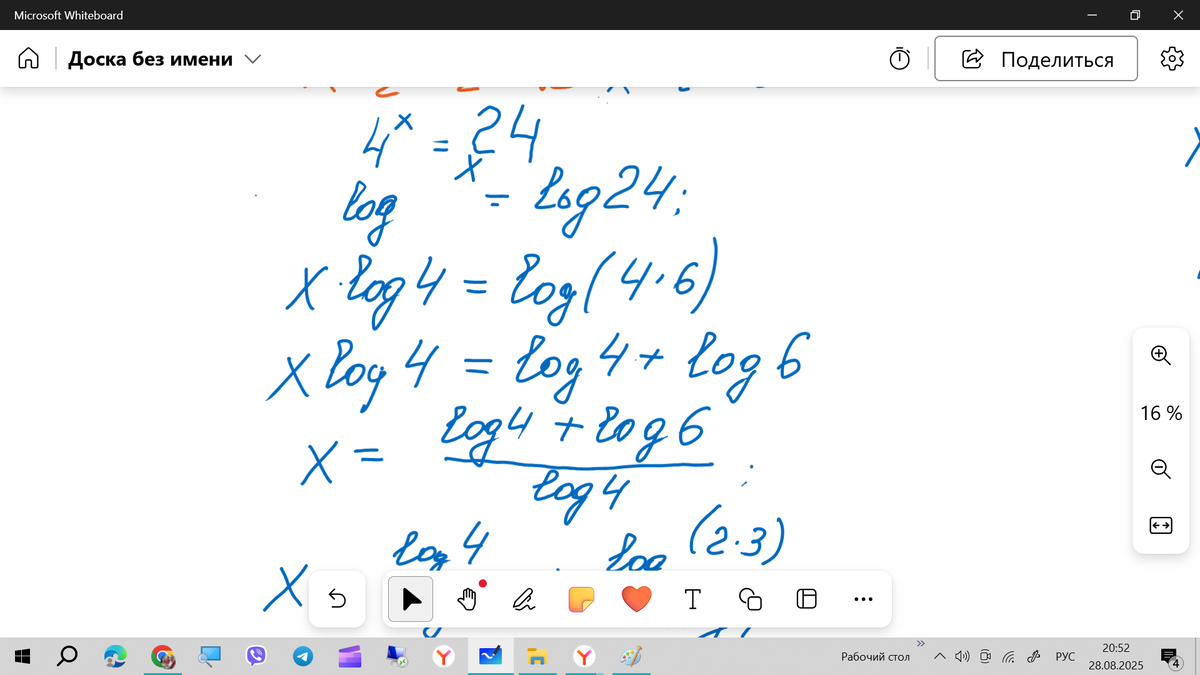 Microsoft Whiteboard
Доска без имени
Поделиться
4^x = 24
log^x = log 24;
x · log 4 = log (4·6)
x log 4 = log 4 + log 6
x = (log 4 + log 6) / log 4 ;
x log 4 log (2·3)
16 %
T
Рабочий стол
РУС
20:52
28.08.2025
4